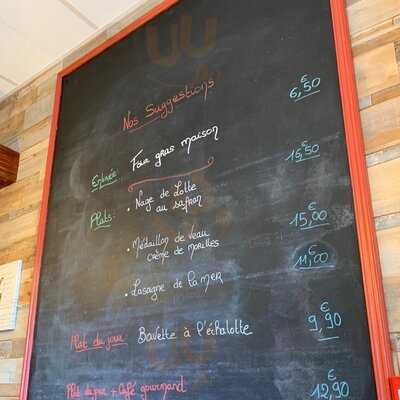 Nos Suggestions
Entrée: Foie gras maison 6,50€
Plats: • Nage de Lotte au safran 15,50€
• Médaillon de veau crème de morilles 15,00€
• Lasagne de la mer 11,00€
Plat du jour Bavette à l'échalotte 9,90€
Plat du jour + Café gourmand 12,90€